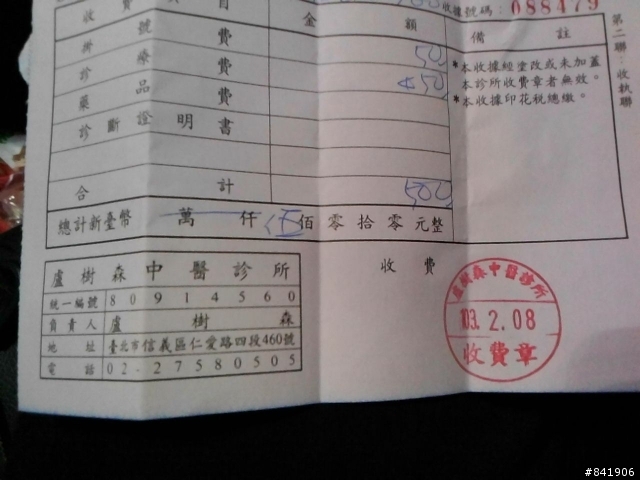 收費項目 金額 備註 收據號碼：088479
掛號費 50
診療費 450
藥品費
診斷證明書
合計 500
總計新臺幣 萬 仟 伍佰零拾零元整
*本收據經塗改或未加蓋
本診所收費章者無效。
*本收據印花稅總繳。
第二聯：收執聯
盧樹森中醫診所
統一編號 80914560
負責人 盧樹森
地址 臺北市信義區仁愛路四段460號
電話 02-27580505
收費
盧樹森中醫診所
103.2.08
收費章
#841906